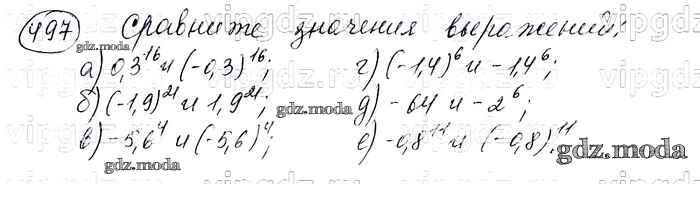 497 Сравните значения выражений:
а) 0,3^16 и (-0,3)^16; г) (-1,4)^6 и -1,4^6;
б) (-1,9)^21 и 1,9^21; д) -64 и -2^6;
в) -5,6^4 и (-5,6)^4; е) -0,8^11 и (-0,8)^11.
gdz.moda
gdz.moda
gdz.moda
gdz.moda